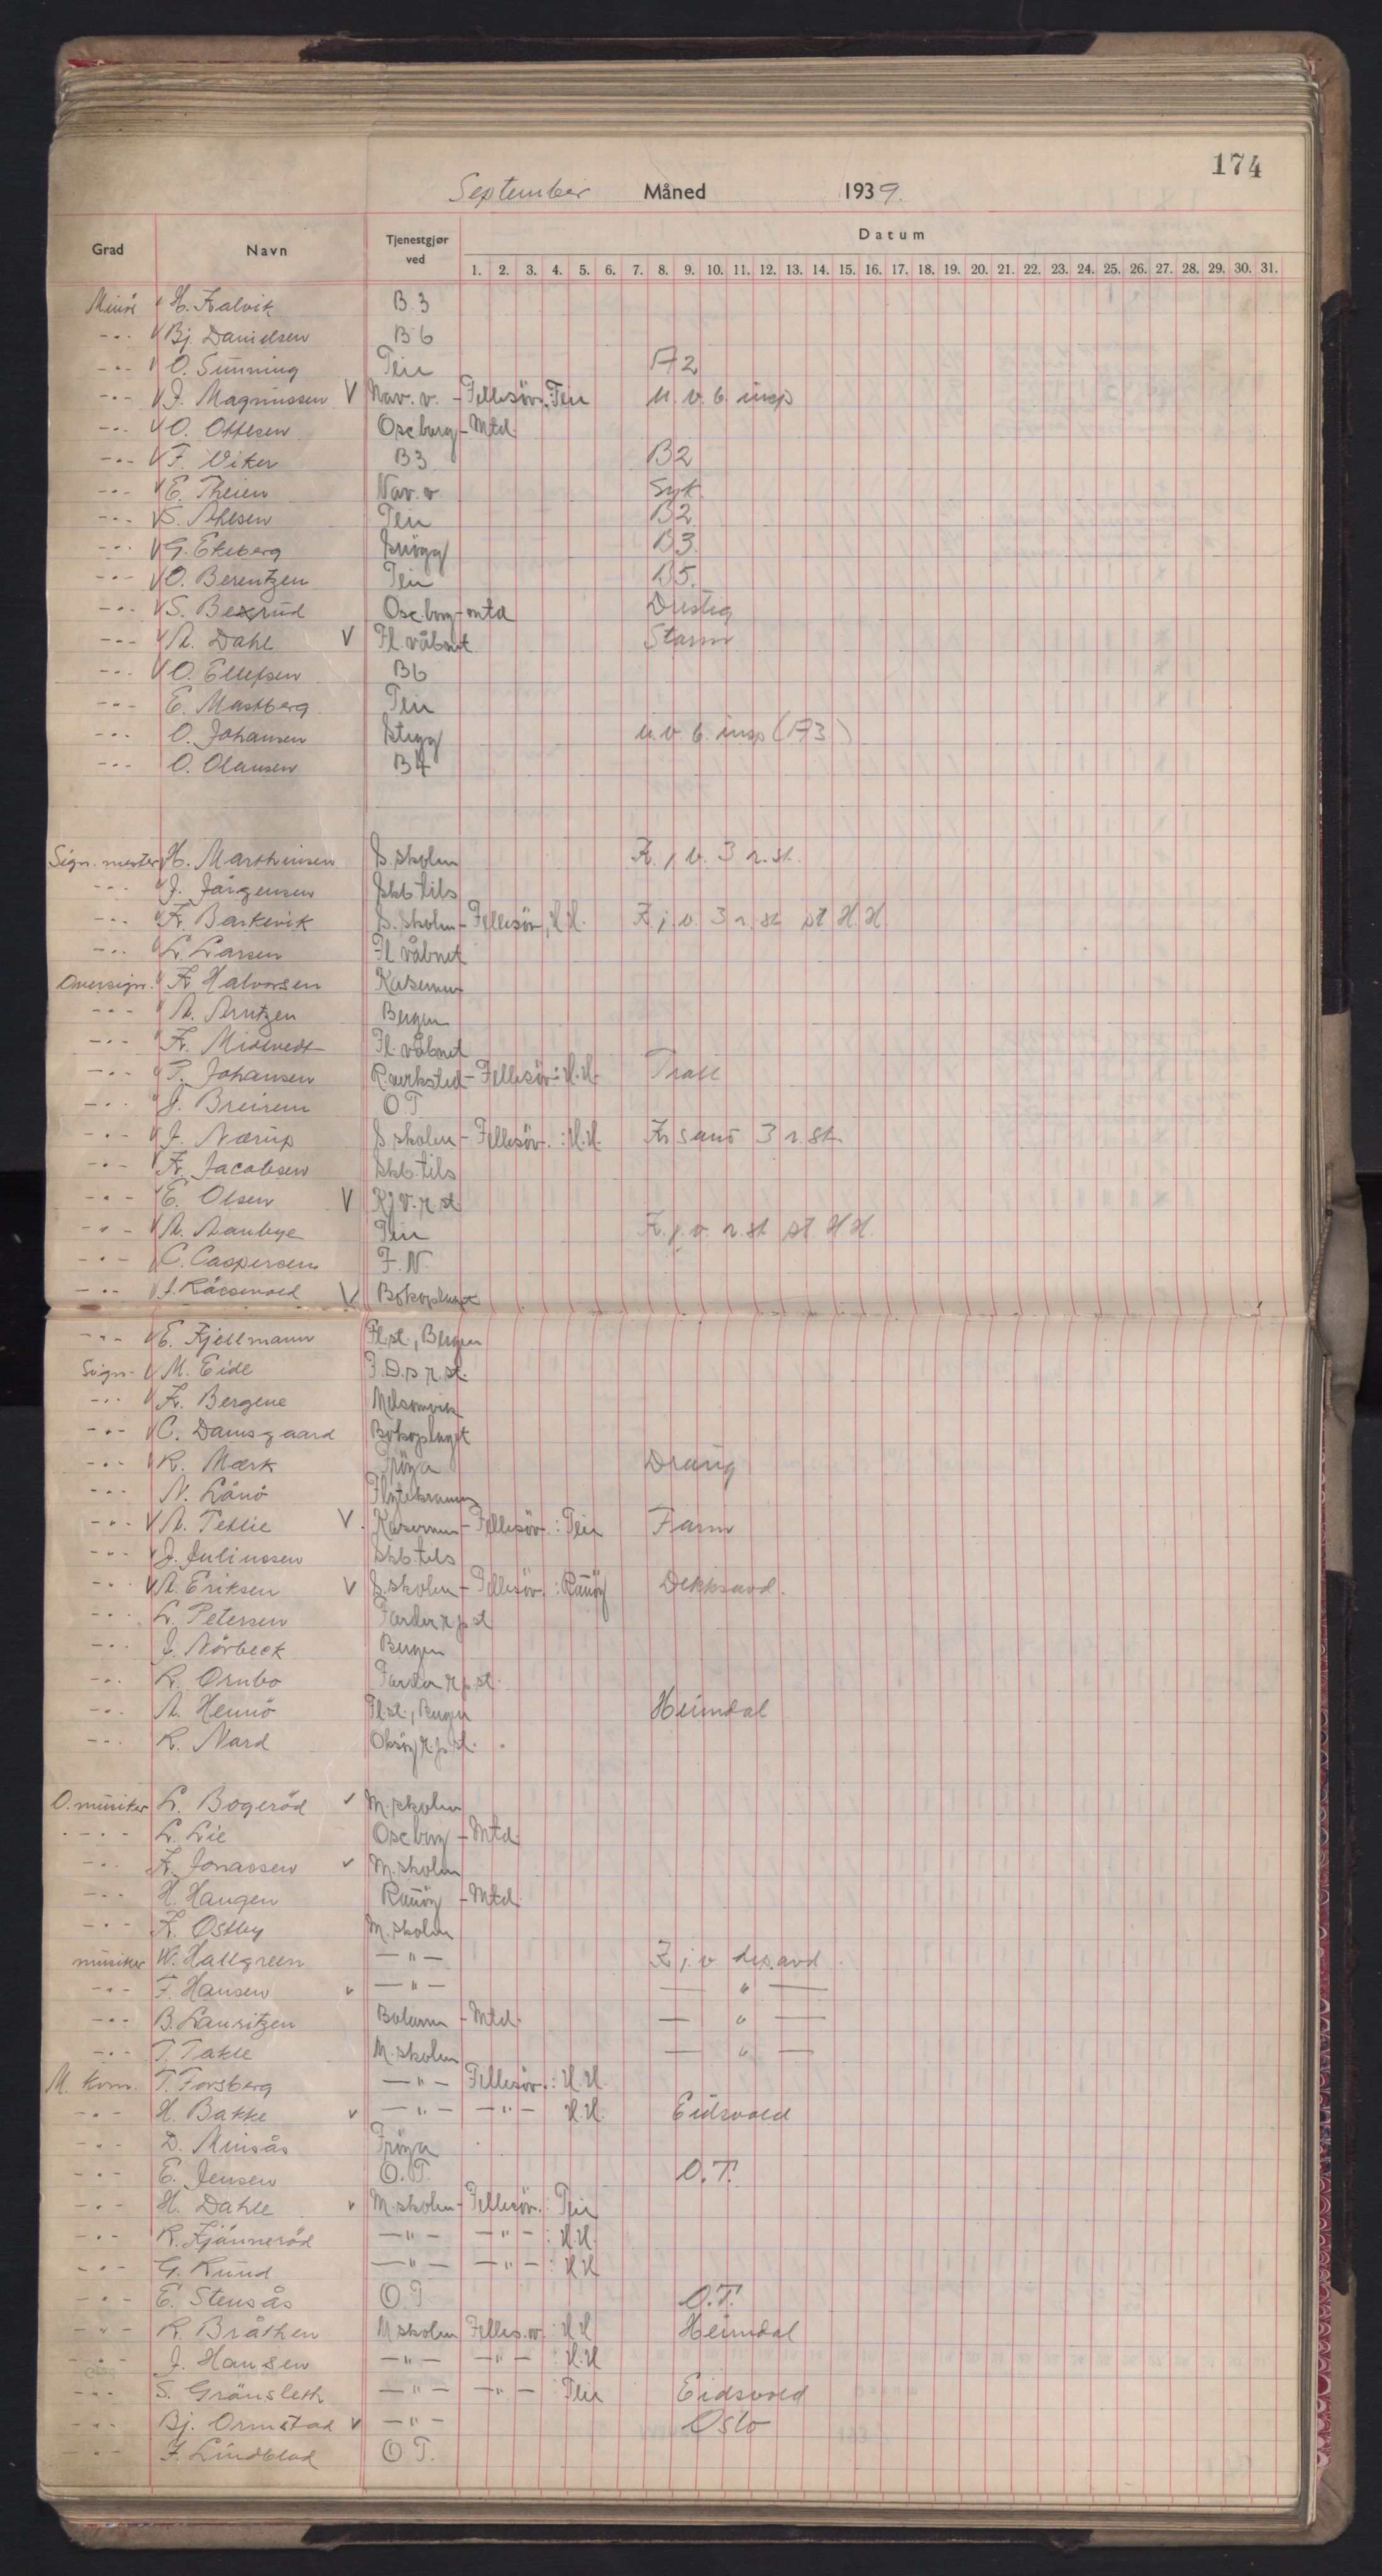 174
September Måned 1939.
Grad Navn Tjenestgjør ved Datum
1. 2. 3. 4. 5. 6. 7. 8. 9. 10. 11. 12. 13. 14. 15. 16. 17. 18. 19. 20. 21. 22. 23. 24. 25. 26. 27. 28. 29. 30. 31.
Minör V H. Kalvik B.3
-"- V Bj. Danielsen B6
-"- V O. Sünning Teie A2
-"- V J. Magnussen V Nav. v. - Fellesöv. Teie u.v.b. insp
-"- V O. Ottesen Osc.borg - Mtd
-"- V F. Viker B3 B2
-"- V E. Theien Nav. v. Syk.
-"- V S. Ahlsen Teie B2
-"- V G. Ekeberg Snögg B3.
-"- V O. Berentzen Teie B5.
-"- V S. Bexrud Osc.borg - mtd Dristig
-"- V A. Dahl V Fl. våbnet Storm
-"- V O. Ellefsen B6
-"- E. Mastberg Teie
-"- O. Johansen Stegg u.v.b. insp (A3)
-"- O. Olausen B4
Sign. mester V H. Marthinsen S. skolen K.j.v. 3 r.st.
-"- V J. Jörgensen Skb tils
-"- V K. Barkevik S. Skolen - Fellesöv, H.H. K.j.v. 3 r. st pt H.H.
-"- L. Larsen Fl våbnet
Oversign. V K. Halvorsen Kasernen
-"- V A. Arntzen Bergen
-"- V K. Midtvedt Fl. våbnet
-"- V P. Johansen R.verksted - Fellesöv: H.H. Trall
-"- V J. Breirem O.T
-"- V J. Nærup S. skolen - Fellesöv. : H.H. Kr sand 3 r. st.
-"- V K. Jacobsen Skb. tils
-"- V E. Olsen V Kj V. r. st
-"- V A. Aanbye Teie K.j.v. r. st pt H.H.
-"- V C. Caspersen F.N.
-"- V J. Raasvold V Bokoplaget
-"- V E. Kjellmann Fl.st., Bergen
Sign. V M. Eide F.D.s r. st.
-"- V K. Bergene Melsomvik
-"- V C. Damsgaard Bokoplaget
-"- V R. Mærk Fröya Draug
-"- N. Lönö Flytekranen
-"- V A. Tetlie V. Kasernen - Fellesöv. : Teie Farm
-"- V J. Juliussen Skb. tils
-"- V A. Eriksen V S. skolen - Fellesöv. : Rauöy Dekksavd.
-"- L. Petersen Færder r p st
-"- J. Nörbeck Bergen
-"- R. Ornbo Færder r p. st.
-"- A. Hennö Fl.st., Bergen Heimdal
-"- R. Nard Oksöy r. p. st.
O. musiker L. Bogeröd V M. skolen
-"- L. Lie Osc borg - Mtd
-"- K. Jonassen V M. skolen
-"- H. Haugen Rauöy - Mtd.
-"- K. Ostby M. skolen
musiker W. Hallgreen -"- K j.v dep. avd.
-"- F. Hansen V -"- -"-
-"- B. Lauritzen Bolærne - Mtd. -"-
-"- T. Takle M. skolen -"-
M. korn. T. Forsberg -"- Fellesöv. : H.H.
-"- H. Bakke V -"- -"- H.H. Eidsvold
-"- D. Minsås Fröya
-"- E. Jensen O.T. O.T.
-"- H. Dahle V M. skolen - Fellesöv. : Teie
-"- R. Kjönneröd -"- -"- : H.H.
-"- G. Rund -"- -"- : H.H
-"- E. Stensås O.T O.T.
-"- R. Bråthen M skolen Felles.öv. H.H Heimdal
-"- J. Hansen -"- -"- : H.H
-"- S. Grönsleth -"- -"- : Teie Eidsvold
-"- Bj. Ormstad V -"- Oslo
-"- F. Lindblad O.T.